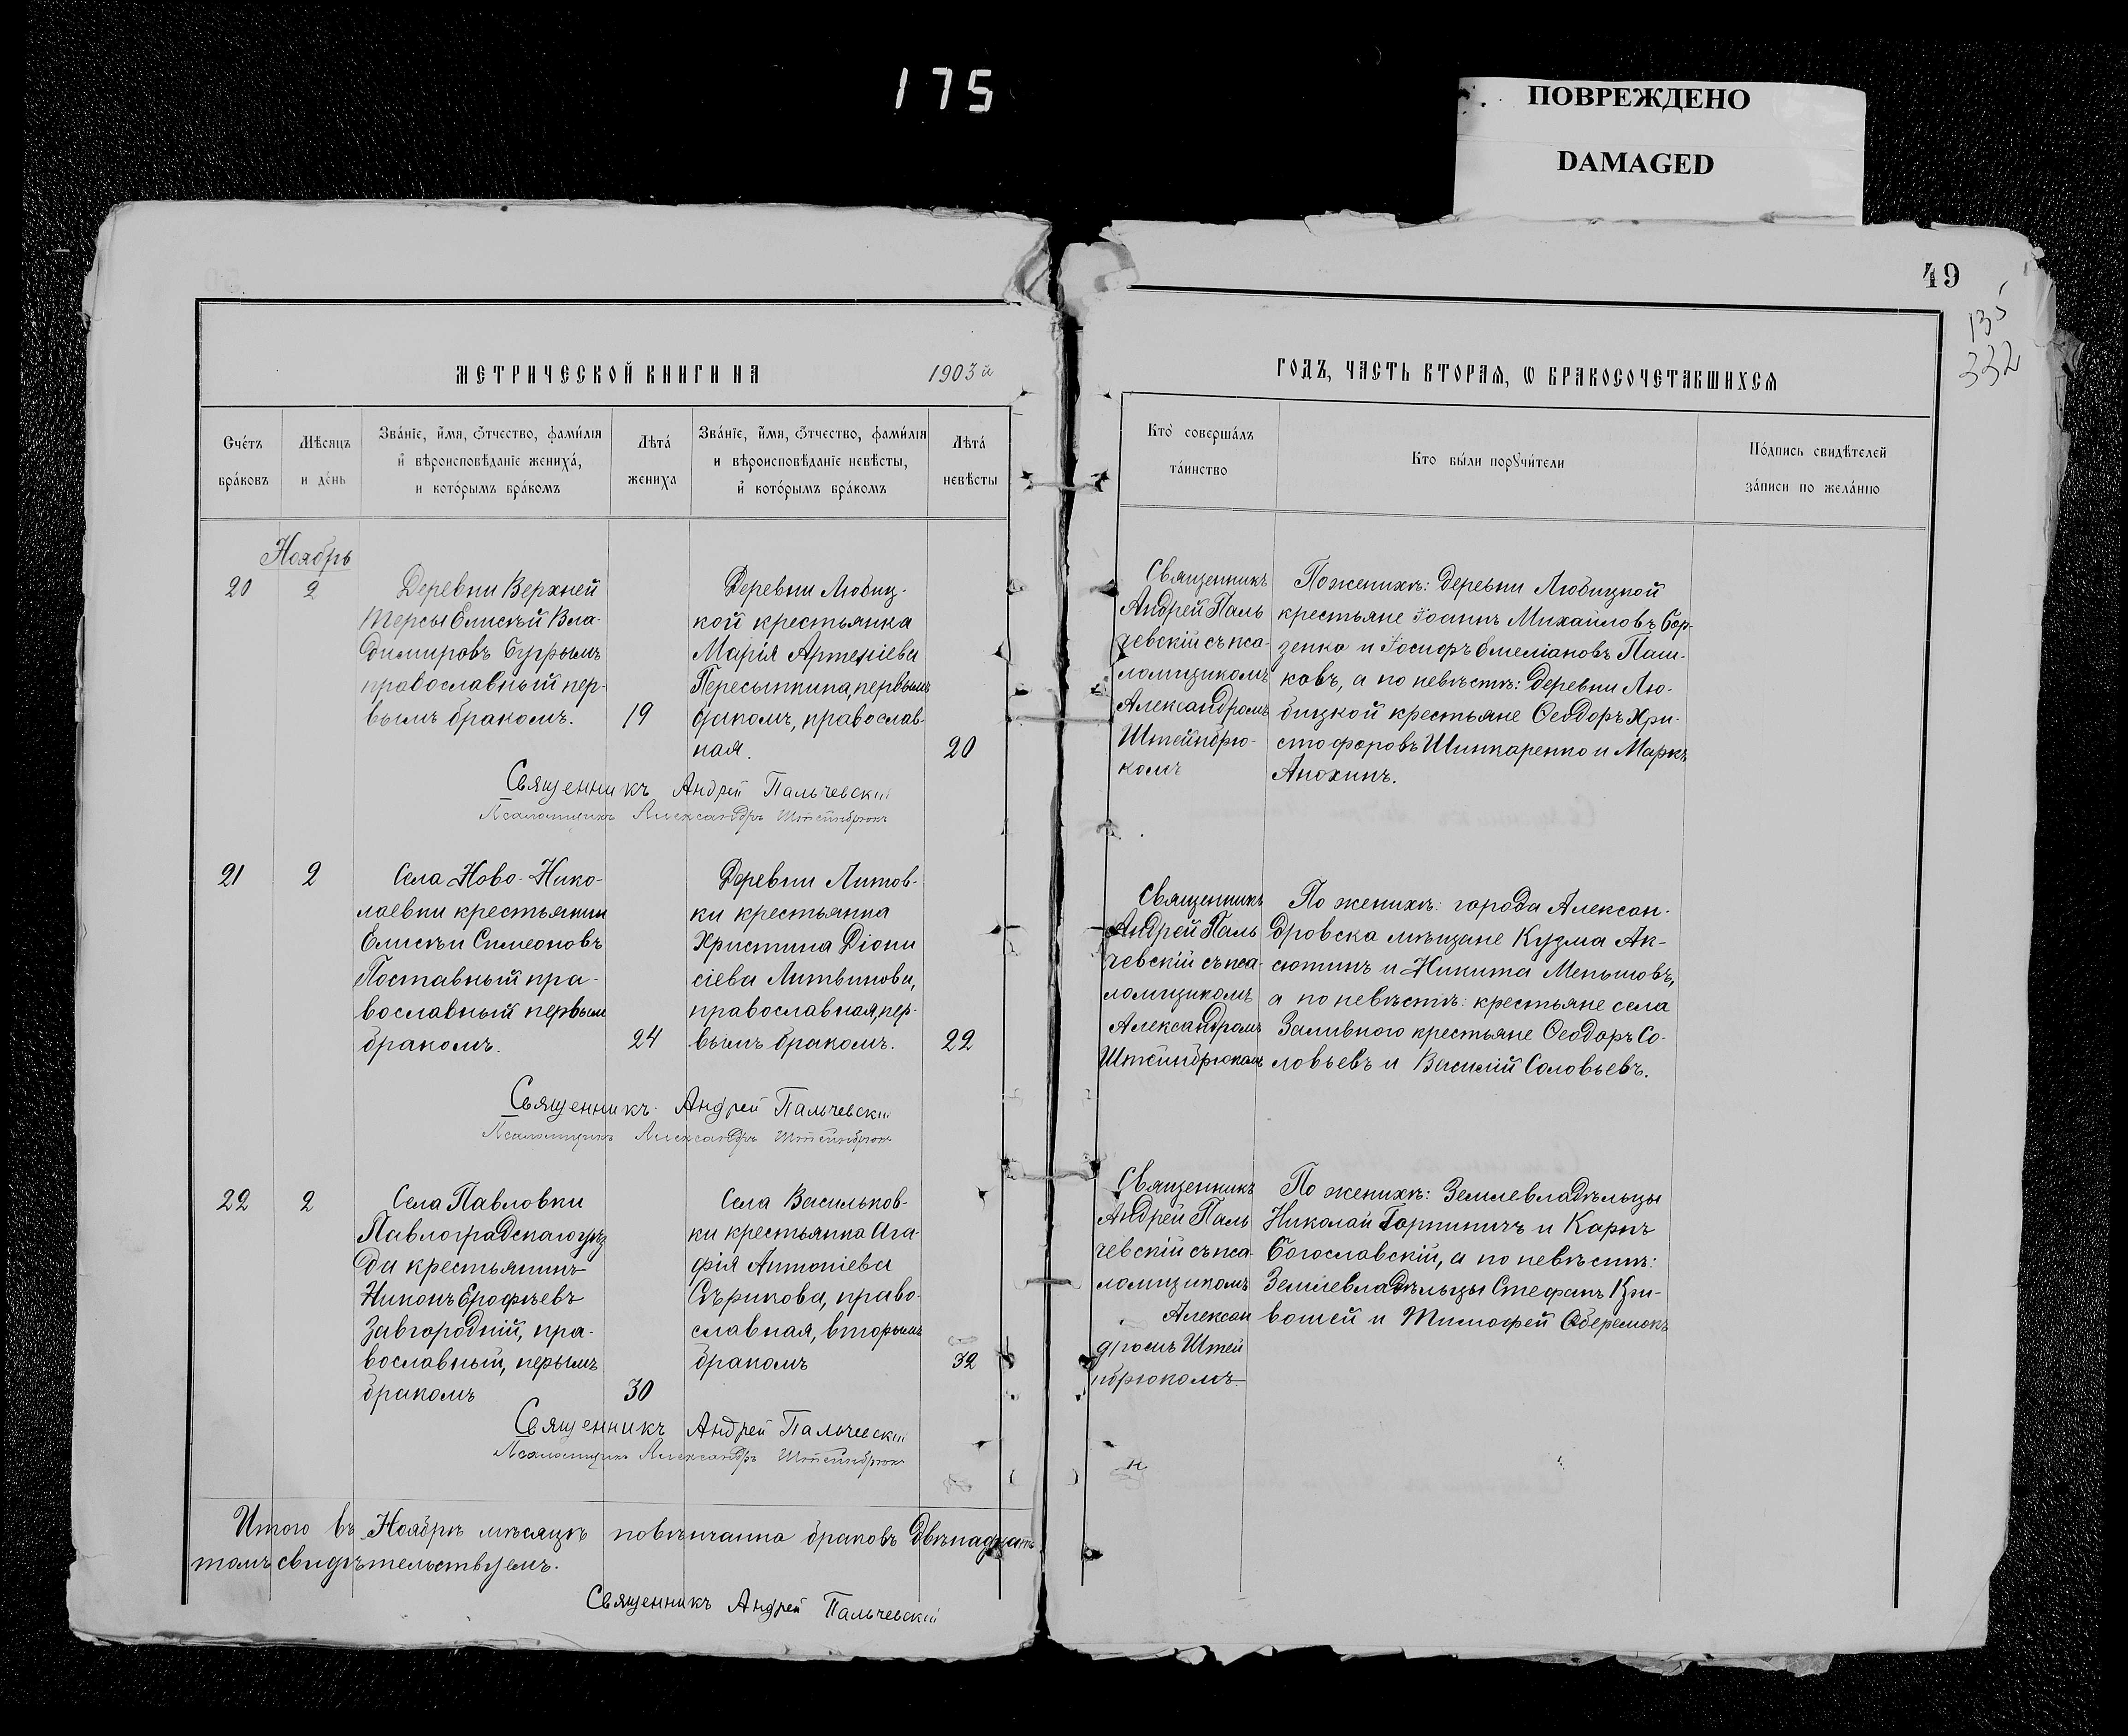 175
ПОВРЕЖДЕНО
DAMAGED
49
135
332
МЕТРИЧЕСКОЙ КНИГИ НА 1903 й
ГОДЪ, ЧАСТЬ ВТОРАЯ, Ѡ БРАКОСОЧЕТАВШИХСЯ
Счетъ браковъ
Мѣсяцъ и день
Званіе, имя, отчество, фамилія
и вѣроисповѣданіе жениха,
и которымъ бракомъ
Лѣта жениха
Званіе, имя, отчество, фамилія
и вѣроисповѣданіе невѣсты,
и которымъ бракомъ
Лѣта невѣсты
Кто совершалъ
таинство
Кто были поручители
Подпись свидѣтелей
записи по желанію
Ноябрь
20
2
Деревни Верхней
Терсы Елисѣй Вла-
димировъ
православный пер-
вымъ бракомъ.
19
Деревни Любиц-
кой крестьянка
Марія Артеміева
Пересыпкина, первымъ
бракомъ, православ-
ная.
20
Священникъ
Андрей Паль
чевскій съ пса-
ломщикомъ
Александромъ
Штейнбрю-
комъ
По женихѣ: деревни Любицкой
крестьяне Іоаннъ Михайловъ Бор-
зенко и Іосифъ Емеліановъ Паш-
ковъ, а по невѣстѣ: деревни Лю-
бицкой крестьяне Ѳеодоръ Хри-
стофоровъ Шинкаренко и Маркъ
Анохинъ.
Священникъ Андрей Пальчевскій
Псаломщикъ Александръ Штейнбрюкъ
21
2
Села Ново-Нико-
лаевки крестьянин
Елисѣй Симеоновъ
Поставный пра-
вославный первым
бракомъ.
24
Деревни Литов-
ки крестьянка
Христина Діони
сіева Литвинова,
православная, пер-
вымъ бракомъ.
22
Священникъ
Андрей Паль
чевскій съ пса-
ломщикомъ
Александромъ
Штейнбрюкомъ
По женихѣ: города Алексан-
дровска мѣщане Кузма Ак-
сютинъ и Никита Меньшовъ,
а по невѣстѣ: крестьяне села
Заливного крестьяне Ѳеодоръ Со-
ловьевъ и Василій Соловьевъ.
Священникъ Андрей Пальчевскій
Псаломщикъ Александръ Штейнбрюкъ
22
2
Села Павловки
Павлоградскаго уѣз
да крестьянинъ
Никонъ Ерофѣевъ
Завгородній, пра-
вославный, перымъ
бракомъ
30
Села Васильков-
ки крестьянка Ага-
фія Антоніева
Сѣрикова, право-
славная, вторымъ
бракомъ
32
Священникъ
Андрей Паль
чевскій съ пса-
ломщикомъ
Алексан
дромъ Штей
нбрюкомъ
По женихѣ: Землевладѣльцы
Николай Горпиничъ и Карпъ
Богославскій, а по невѣстѣ:
Землевладѣльцы Стефанъ Кри-
вошей и Тимофей Оберемокъ
Священникъ Андрей Пальчевскій
Псаломщикъ Александръ Штейнбрюкъ
Итого въ Ноябрѣ мѣсяцѣ повѣнчанно браковъ двѣнадцать
томъ свидѣтельствуемъ.
Священникъ Андрей Пальчевскій